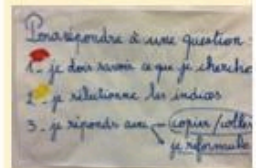 Pour répondre à une question :
1 - je dois savoir ce que je cherche
2 - je sélectionne les indices
3 - je réponds avec copier / coller
je reformule